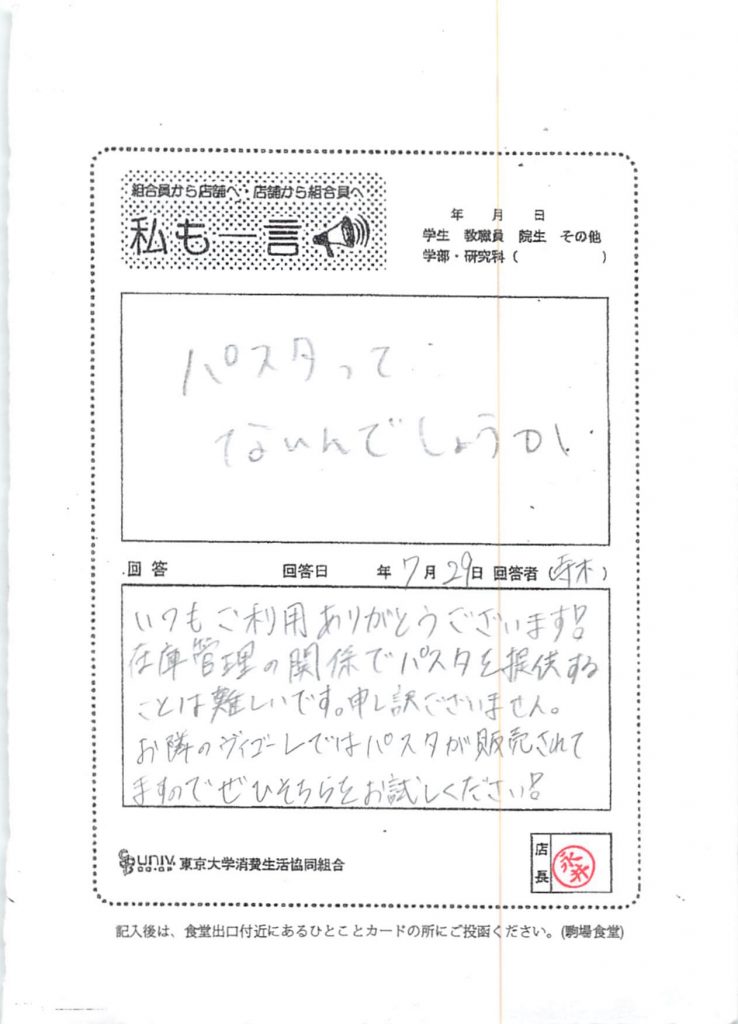 組合員から店舗へ・店舗から組合員へ
私も一言
年 月 日
学生 教職員 院生 その他
学部・研究科（ ）
パスタって
ないんでしょうか
回答 回答日 年7月29日 回答者（寺木）
いつもご利用ありがとうございます!!
在庫管理の関係でパスタを提供する
ことは難しいです。申し訳ございません。
お隣のヴィゴーレではパスタが販売されて
ますのでぜひそちらをお試しください!!
UNIV.
CO-OP
東京大学消費生活協同組合
店長
永井
記入後は、食堂出口付近にあるひとことカードの所にご投函ください。(駒場食堂)